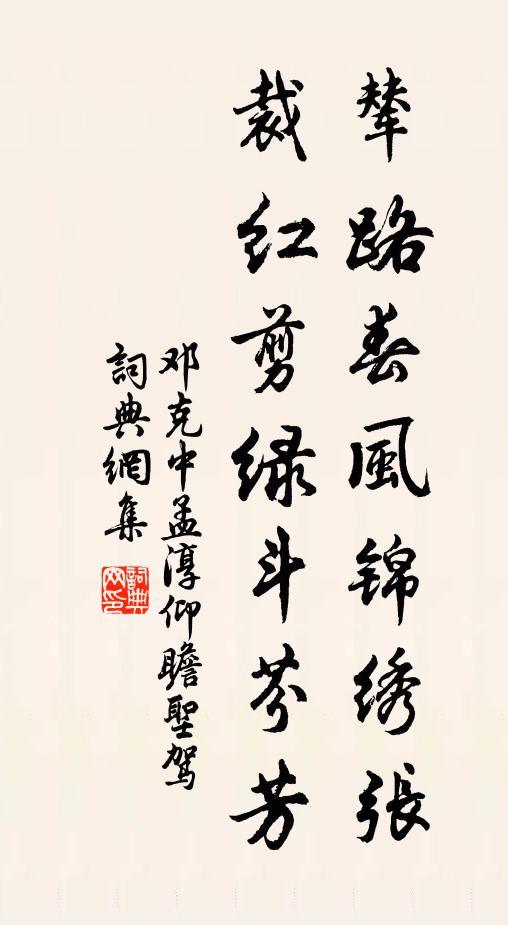 辇路春風锦绣張
裁红剪绿斗芬芳
邓克中孟淳仰瞻聖驾
詞典網集
詞典网印